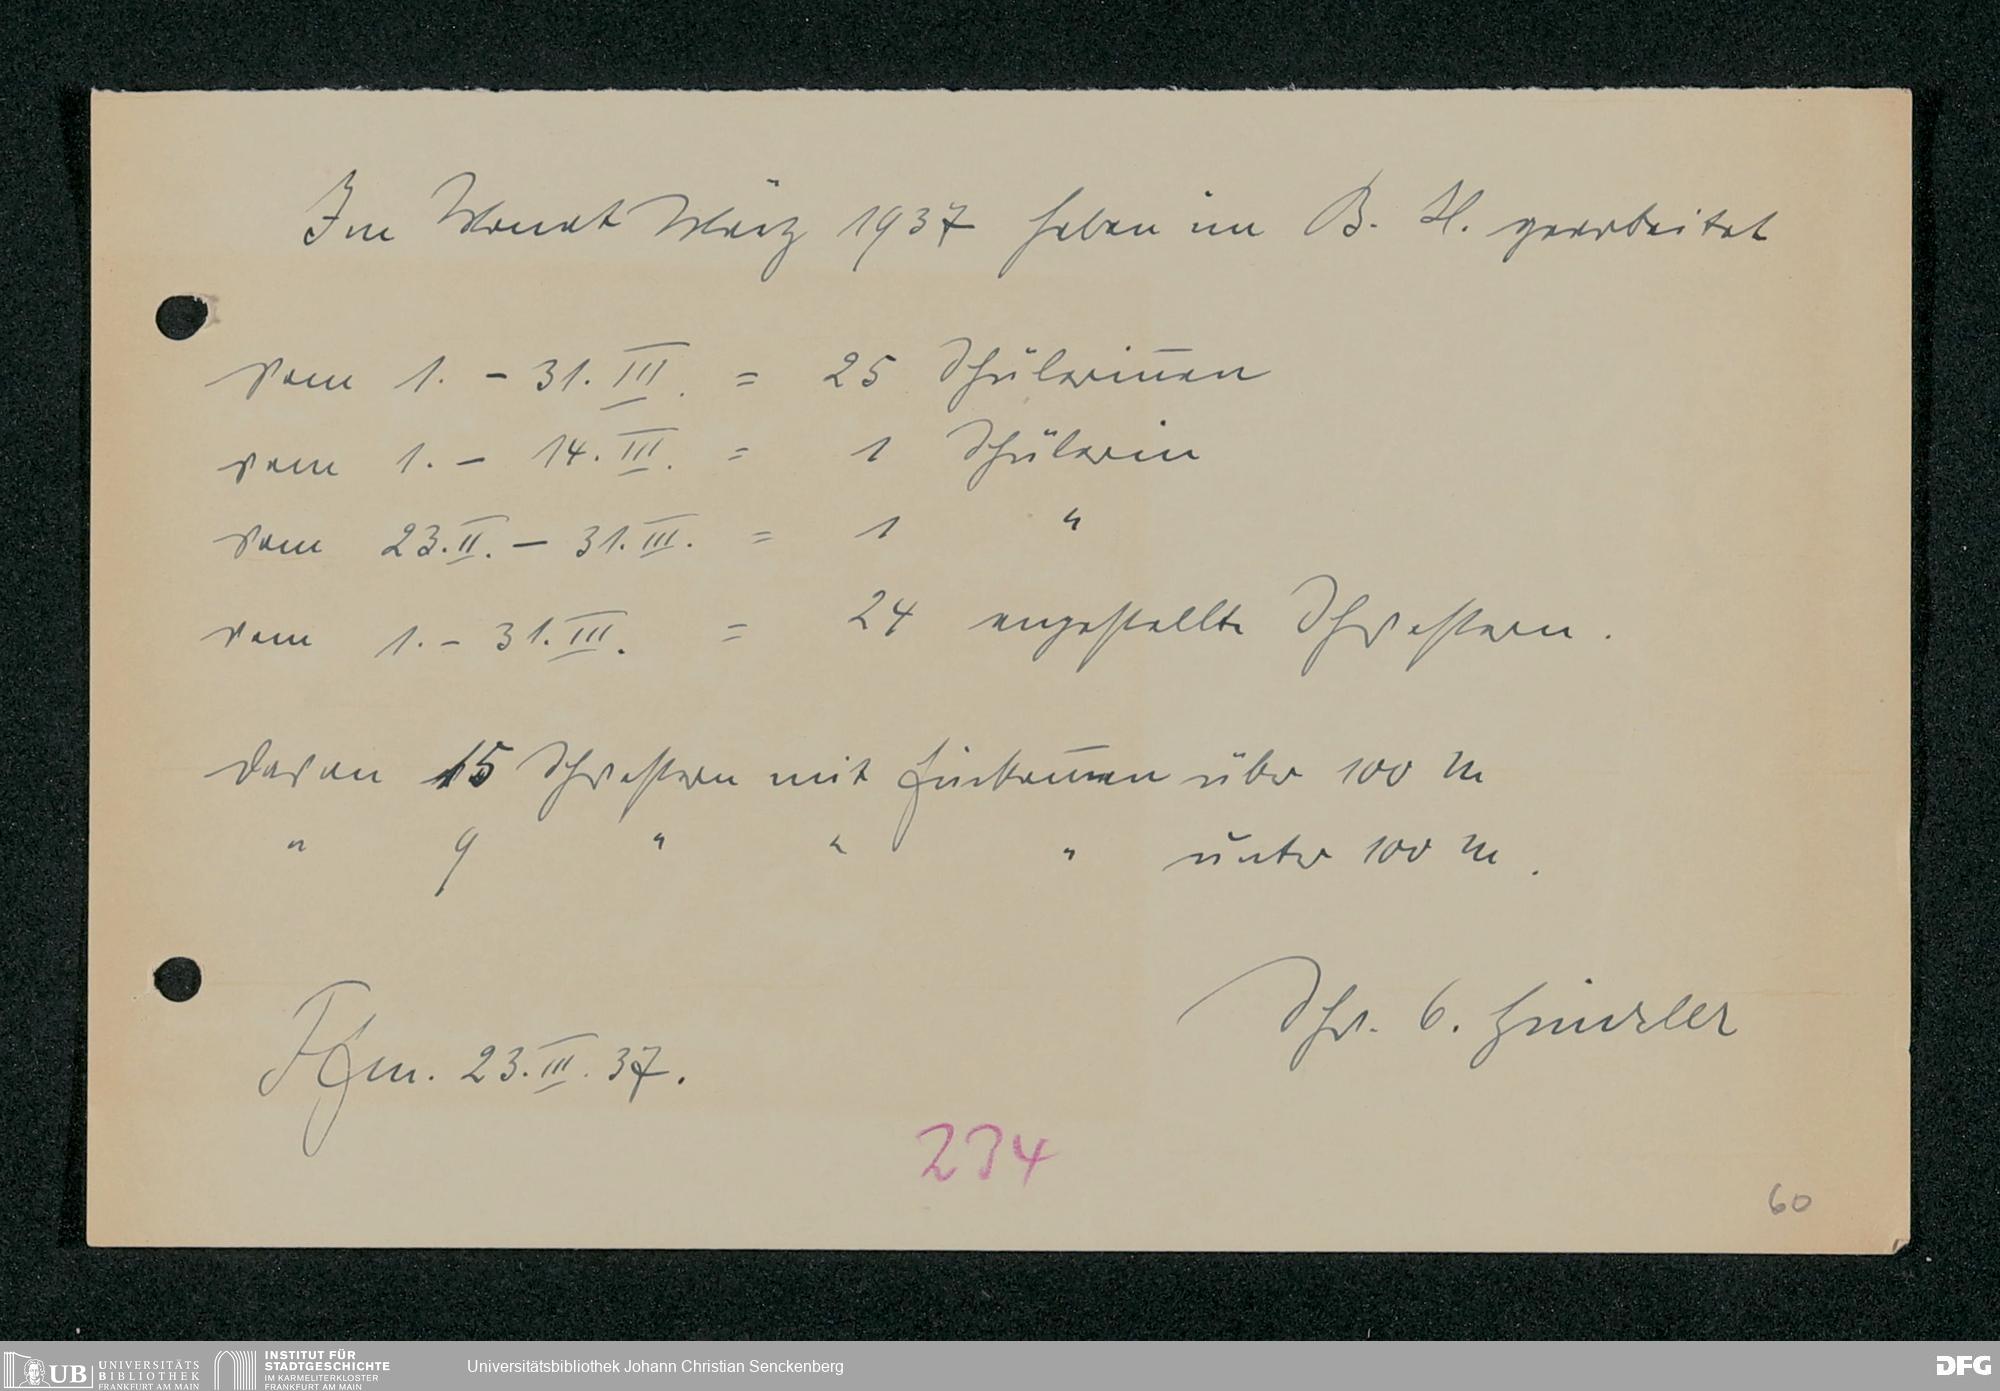 Im Monat März 1937 haben im B. H. gearbeitet
vom 1. - 31. III. = 25 Schülerinn̅en
vom 1. - 14. III. = 1 Schülerin
vom 23. II. - 31. III. = 1 "
vom 1. - 31. III. = 24 angestellte Schwestern.
davon 15 Schwestern mit Einkom̅en über 100 M
" 9 " " " unter 100 M.
Schw.
Ffm. 23. III. 37.
234
60
UB UNIVERSITÄTS BIBLIOTHEK FRANKFURT AM MAIN
INSTITUT FÜR STADTGESCHICHTE IM KARMELITERKLOSTER FRANKFURT AM MAIN
Universitätsbibliothek Johann Christian Senckenberg
DFG